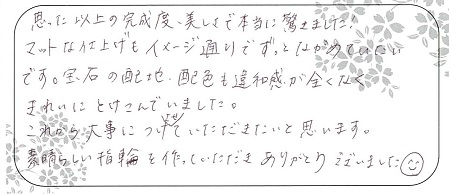 思った以上の完成度、美しさで本当に驚きました！
マットな仕上げもイメージ通りでずっとながめていたい
です。宝石の配地、配色も違和感が全くなく
きれいにとけこんでいました。
これから大事につけさせていただきたいと思います。
素晴らしい指輪を作っていただきありがとうございました